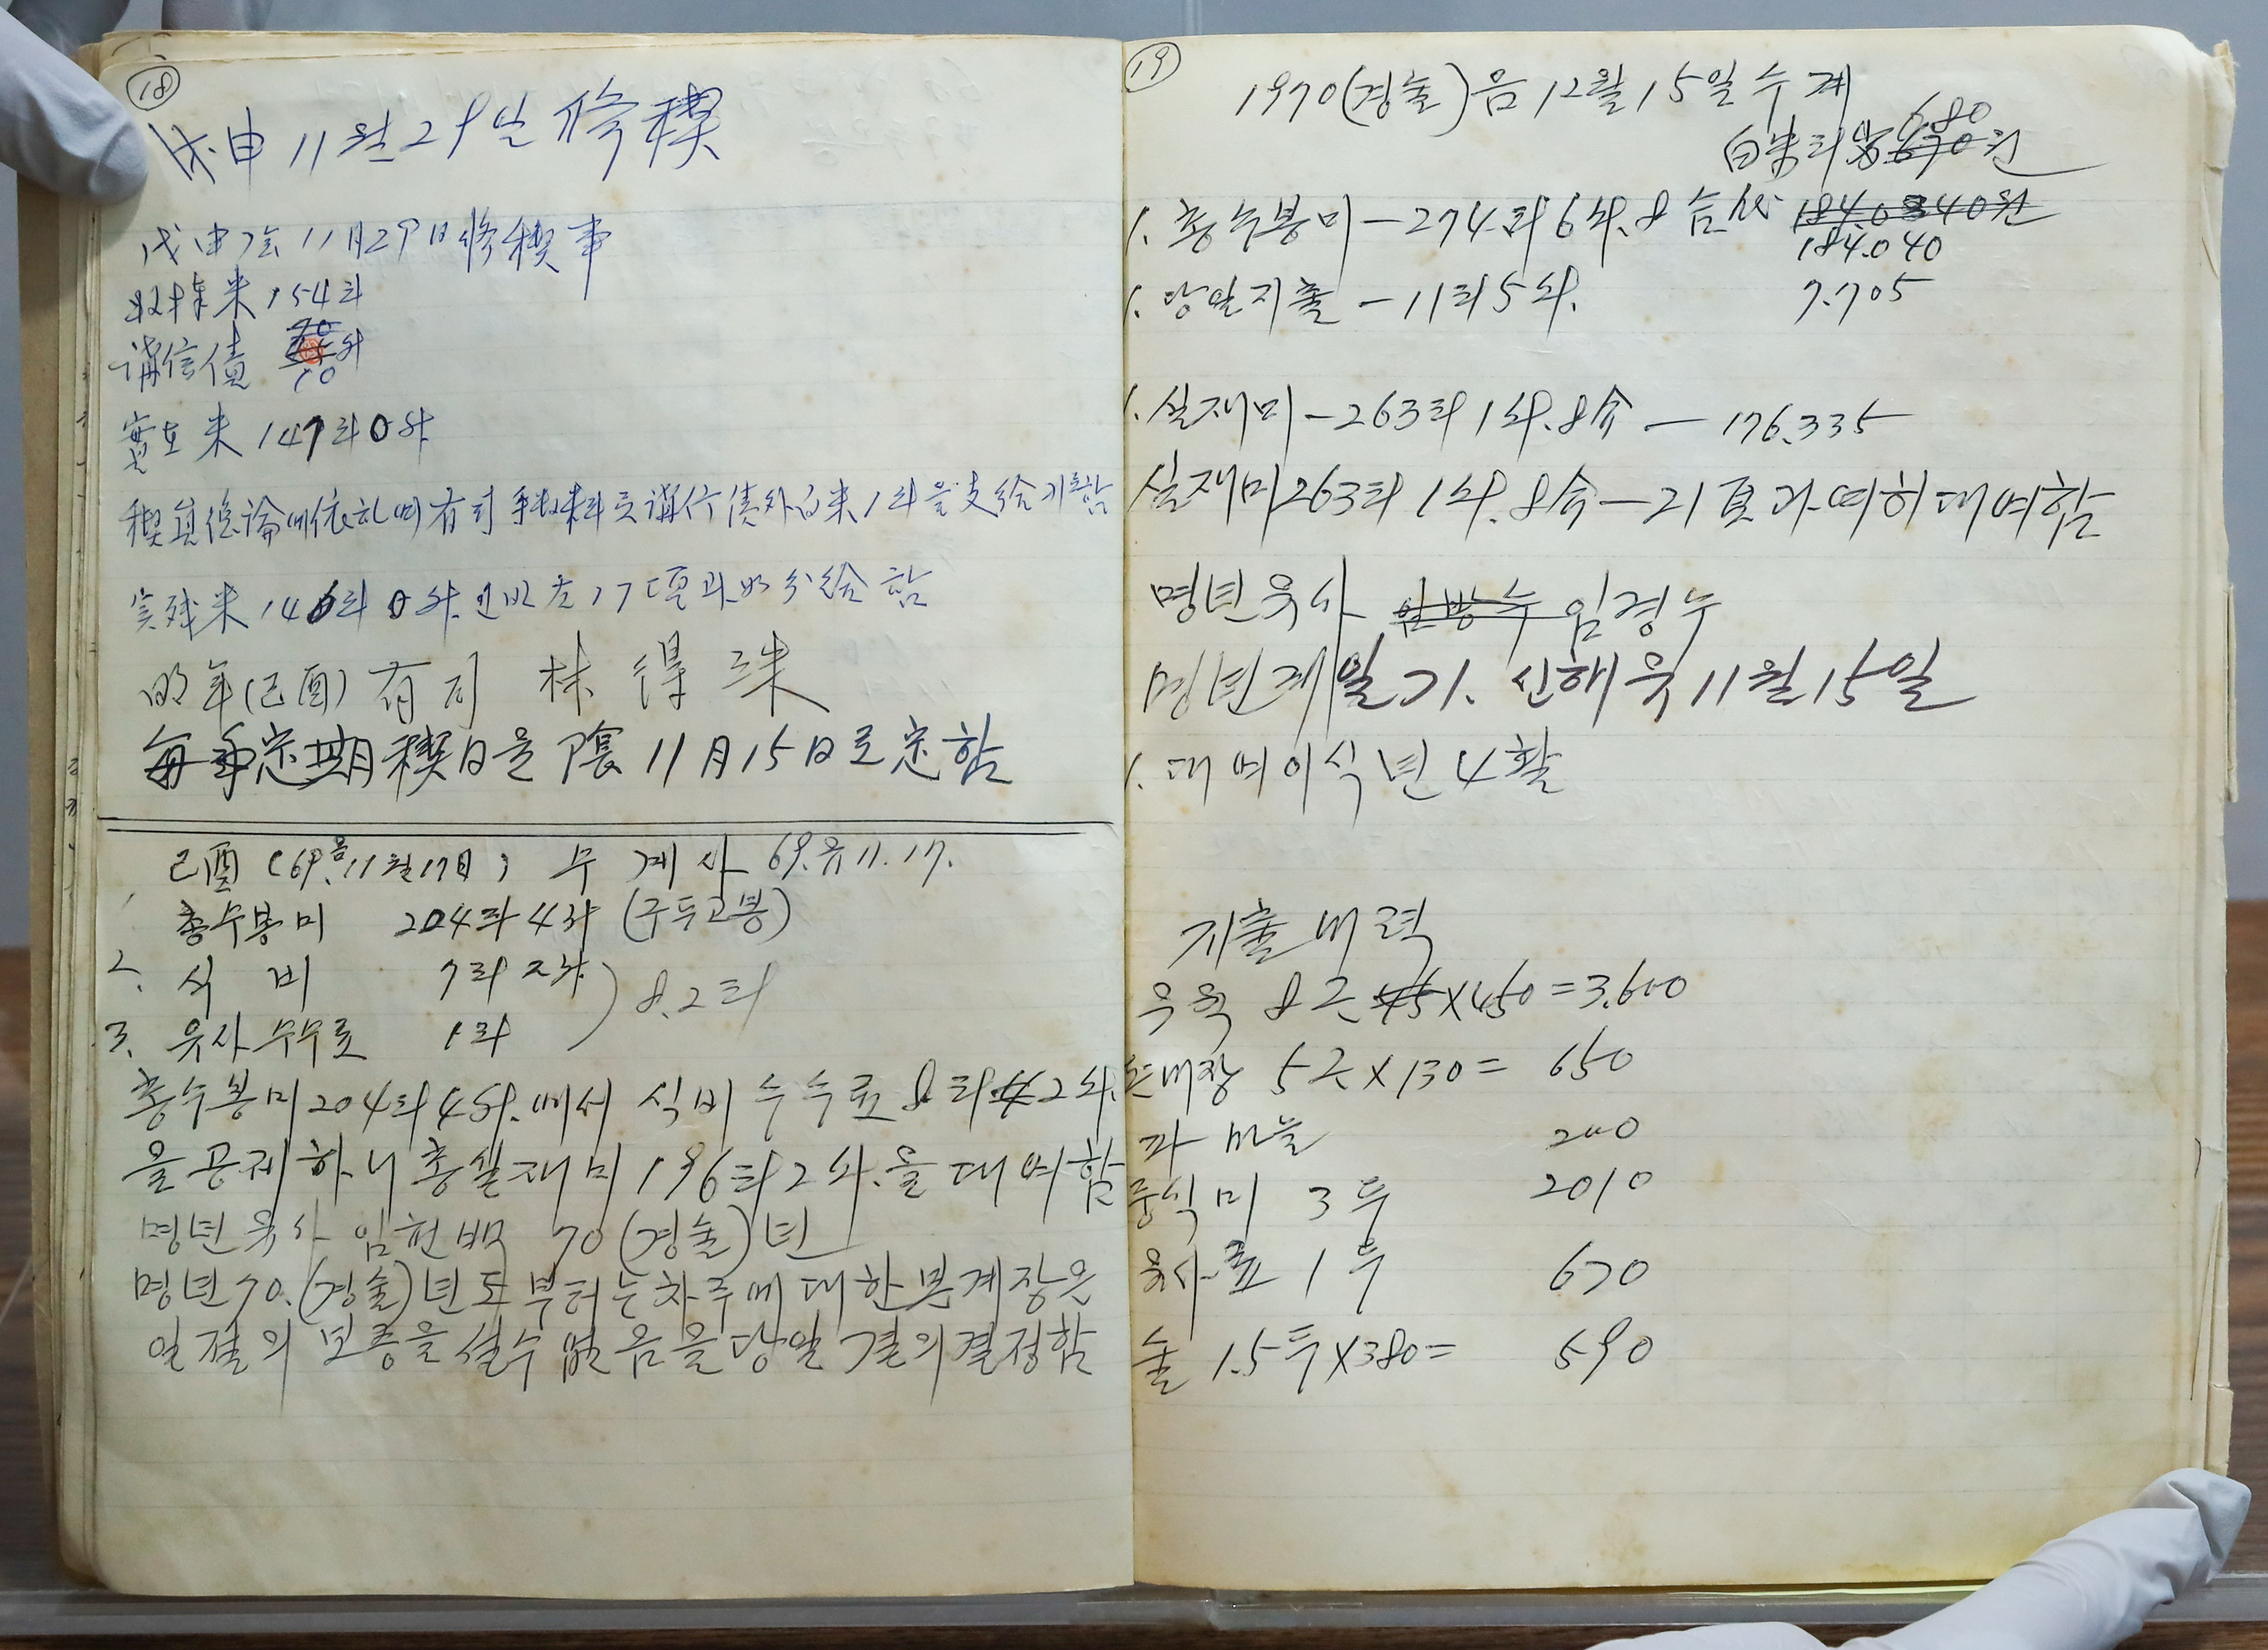 18
戊申 11월 29일 修稧
戊申 陰 11月 29日 修稧事
收捧米 154되
講信債
10
實在米 147되 0升
稧員 에依하여 有司 講信債外 白米 1되을 支給키로함
實残米 146되 0升 17頁과 如 分給함
明年(己酉) 有司 林得珠
每年定期稧日을 陰 11月 15日로 定함
己酉 (69.음11월17日) 수계사 69.음11.17.
총수봉미 204되 4升 (구두고봉)
2. 식비 7되 2升 ) 8.2되
3. 유사수수료 1되
총수봉미 204되 4升.에서 식비 수수료 8되 2升.
을 공제하니 총실재미 196되 2升.을 대여함
명년유사 임헌백 70(경술)년
명년 70.(경술)년도부터는 차주에 대한 본계장은
일절의 보증을 설수 없음을 당일 결의결정함
19
1970(경술)음 12월 15일 수계
680
白米되당 670원
1. 총수봉미 - 274되 6升.8合代 184.0840원
184.040
1. 당일지출 - 11되 5升. 7.705
1. 실재미 - 263되 1升.8合 - 176.335
실재미 263되 1升.8合 - 21頁과 여히 대여함
명년유사 임경수
명년계일기. 신해음 11월 15일
1. 대여이식 년 4할
지출내력
우육 8근 45 x 450 = 3.600
돈내장 5근 x 130 = 650
파 마늘 200
중식미 3두 2010
유사료 1두 670
술 1.5두 x 380 = 590